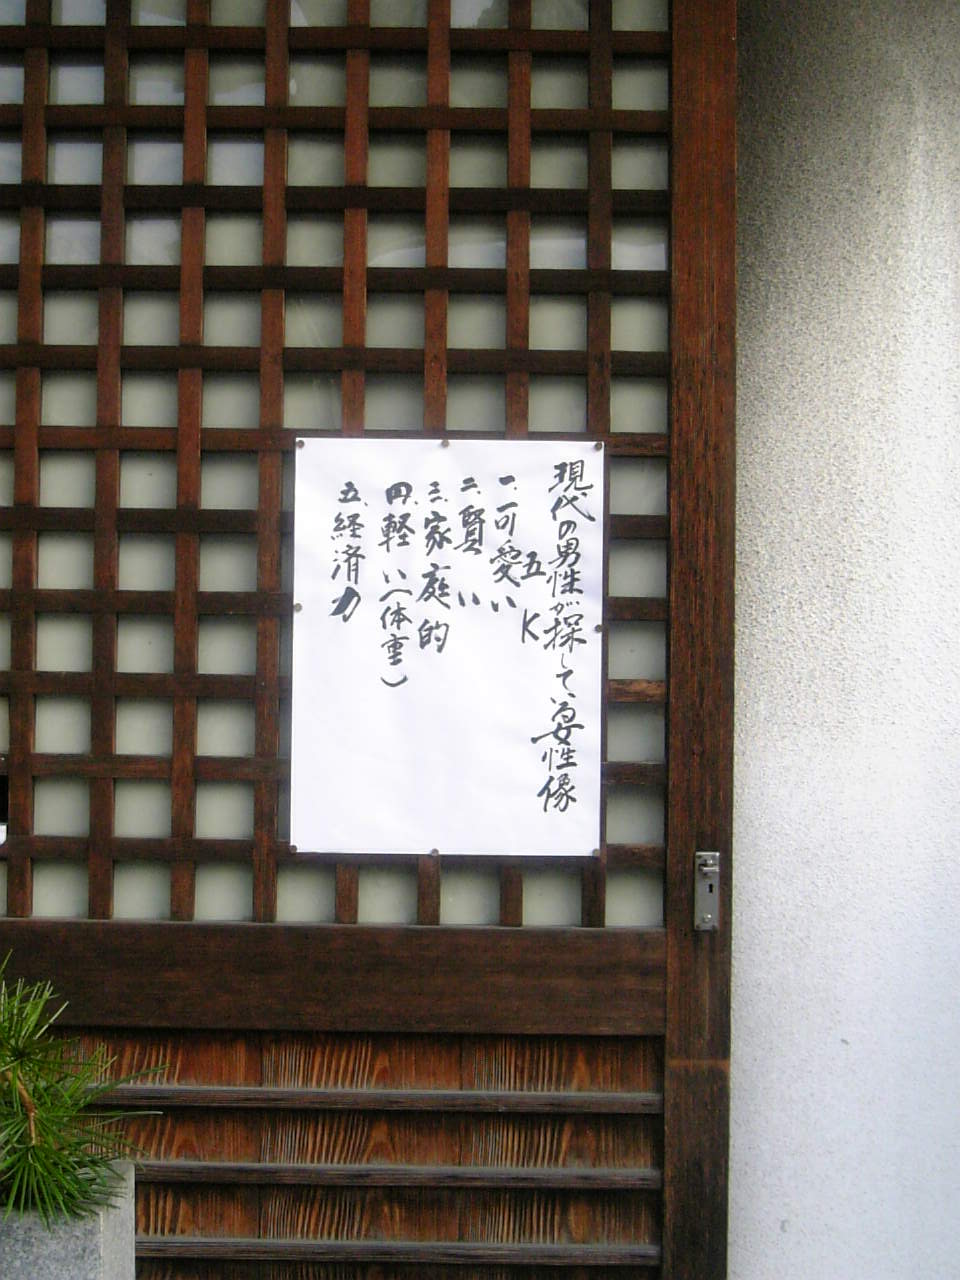 現代の男性が探している女性像
五K
一、可愛い
二、賢い
三、家庭的
四、軽い(体重)
五、経済力